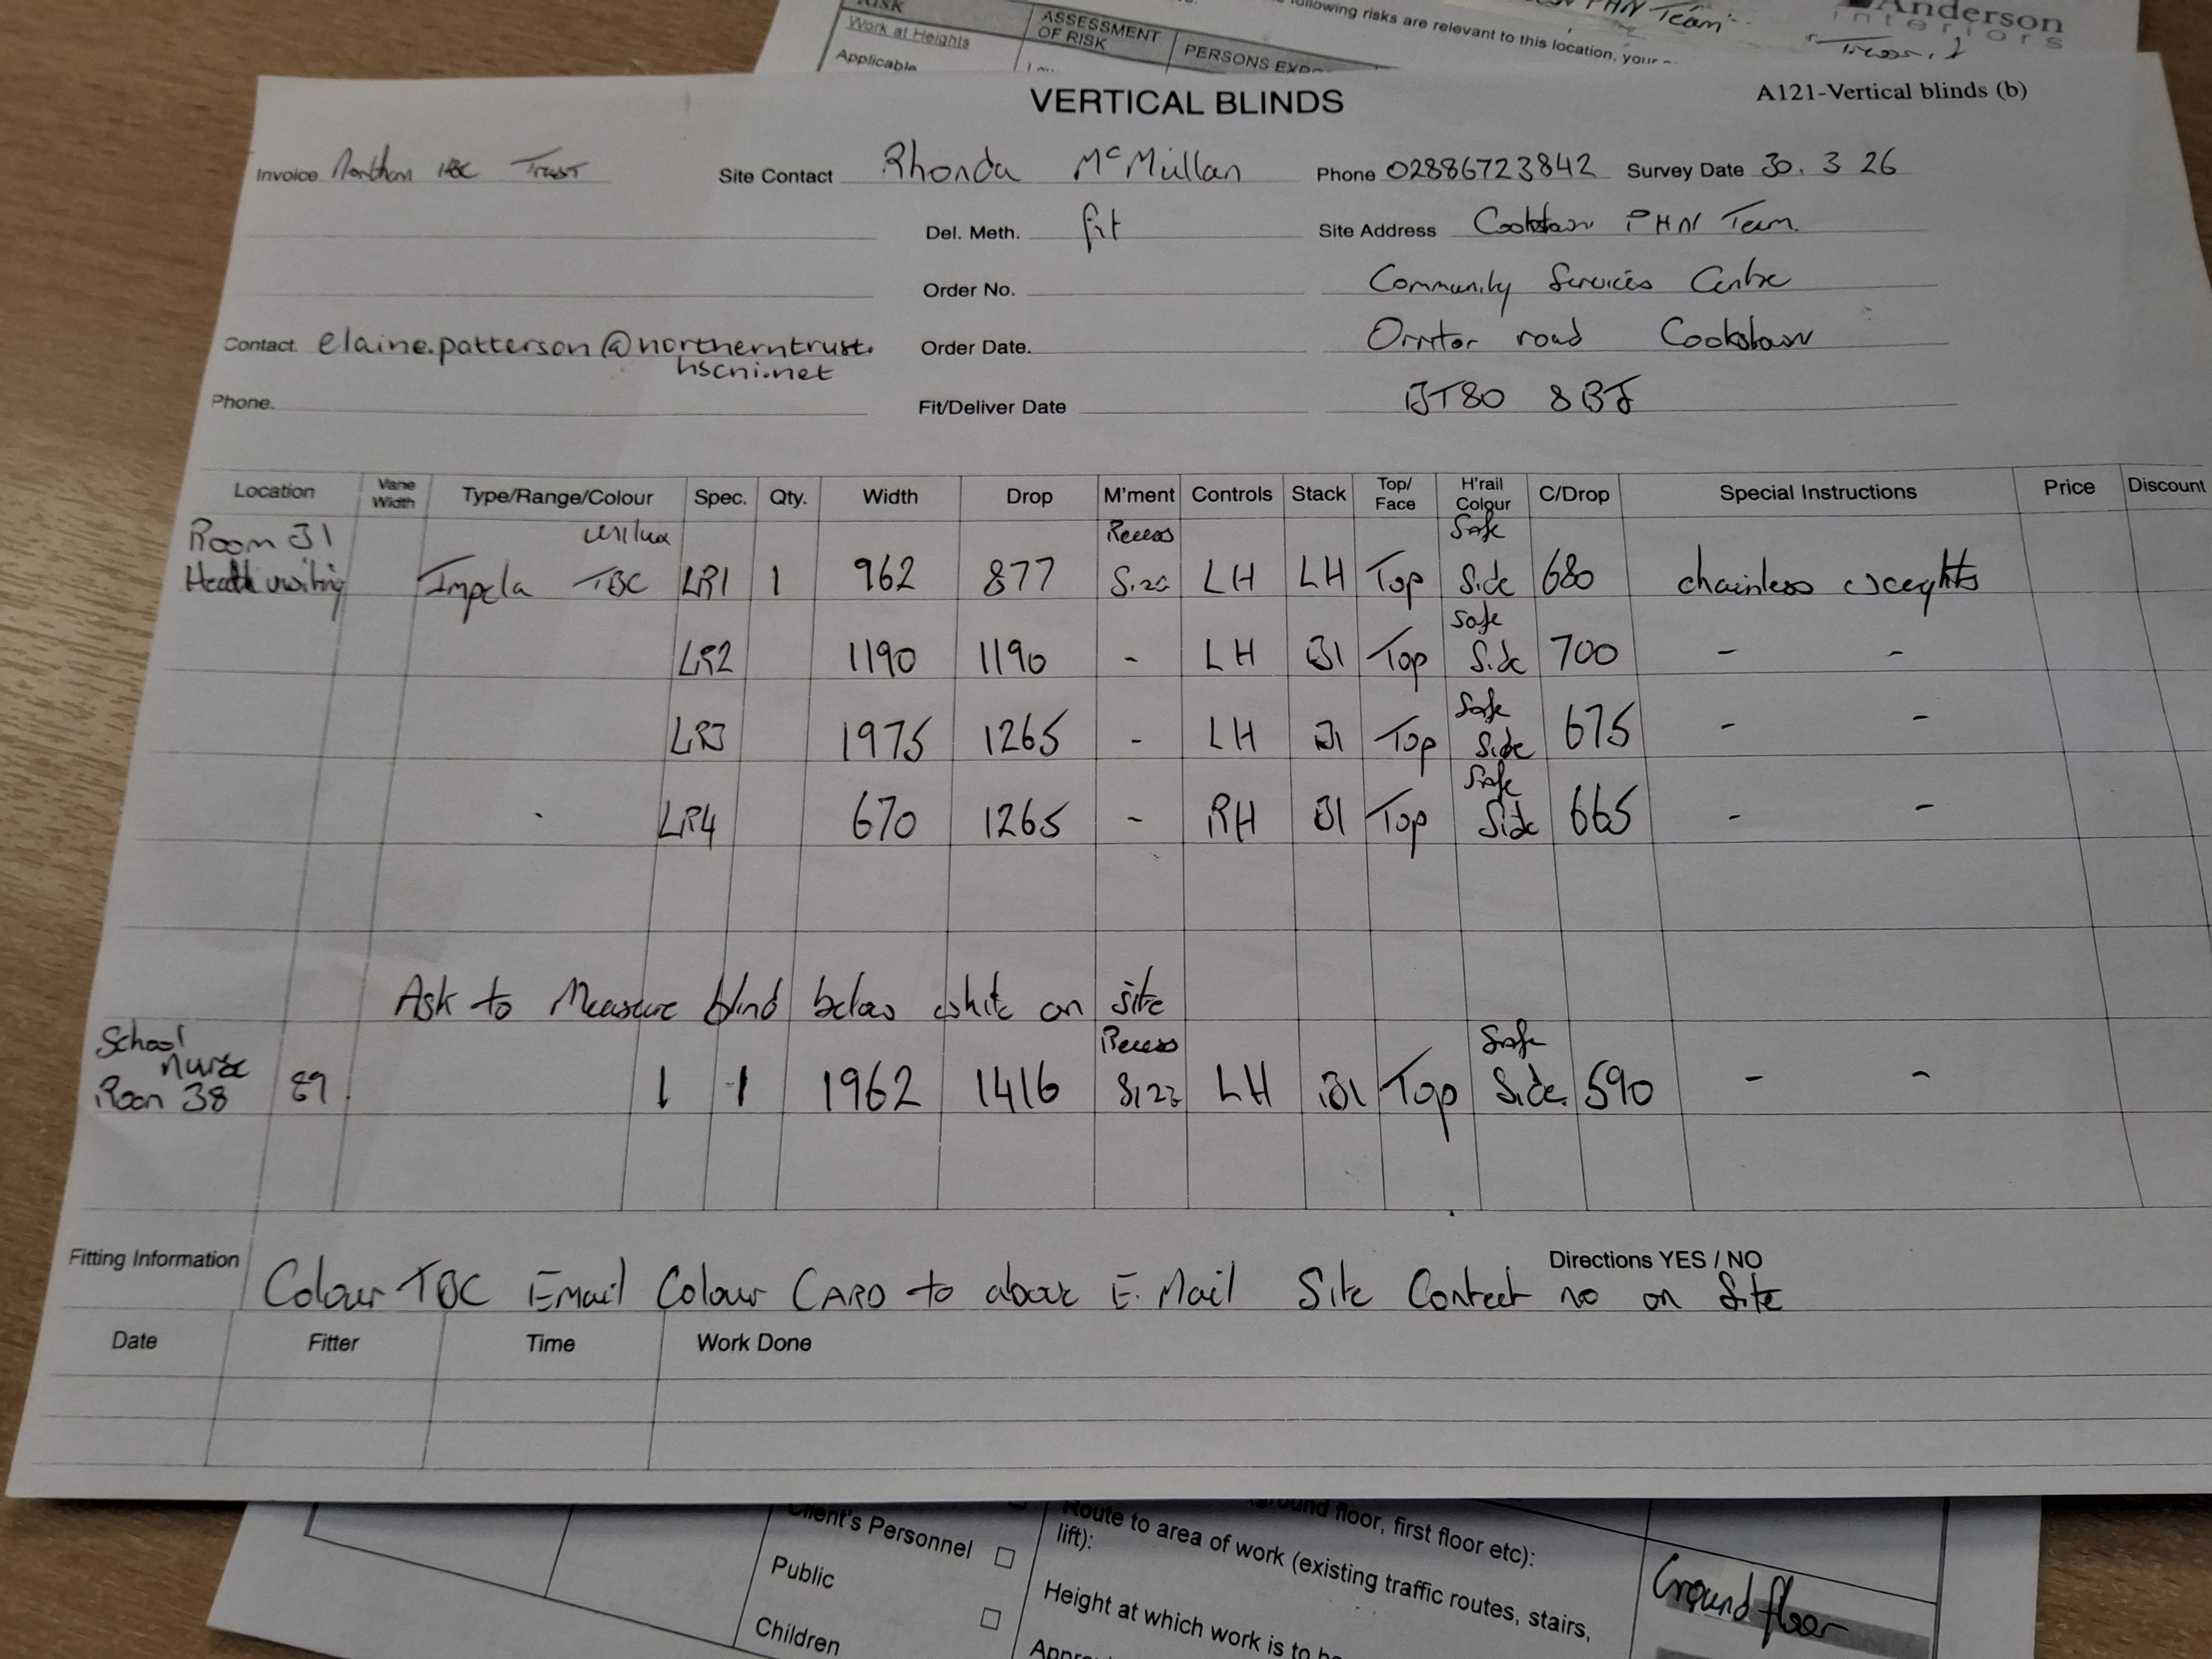 RISK
Work at Heights
Applicable
ASSESSMENT
OF RISK
PERSONS
following risks are relevant to this location, your
PHN Team
Anderson
interiors
VERTICAL BLINDS
A121-Vertical blinds (b)
Invoice Northern HSC Trust
Site Contact Rhonda McMullan
Phone 02886723842 Survey Date 30.3 26
Del. Meth. fit
Site Address Cookstown PHN Team.
Order No.
Community Services Centre
Contact. elaine.patterson@northerntrust.
hscni.net
Order Date.
Orritor road Cookstown
Phone.
Fit/Deliver Date
BT80 8BJ
Location Vane Width Type/Range/Colour Spec. Qty. Width Drop M'ment Controls Stack Top/Face H'rail Colour C/Drop Special Instructions Price Discount
Room 31 unilux Recess Safe
Health visiting Impela TBC LR1 1 962 877 Size LH LH Top Side 680 chainless weights
Safe
LR2 1190 1190 - LH Top Side 700 - -
Safe
LR3 1975 1265 - LH Top Side 675 - -
Safe
LR4 670 1265 - RH Top Side 665 - -
Ask to Measure blind below white on site
School Recess Safe
nurse
Room 38 89 1 1 1962 1416 Size LH Top Side. 590 - -
Fitting Information
Directions YES / NO
Colour TBC Email Colour CARD to above E.Mail Site Contact no on Site
Date Fitter Time Work Done
Client's Personnel
Public
Children
Route to area of work (existing traffic routes, stairs,
lift):
ground floor, first floor etc):
Height at which work is to
Ground floor